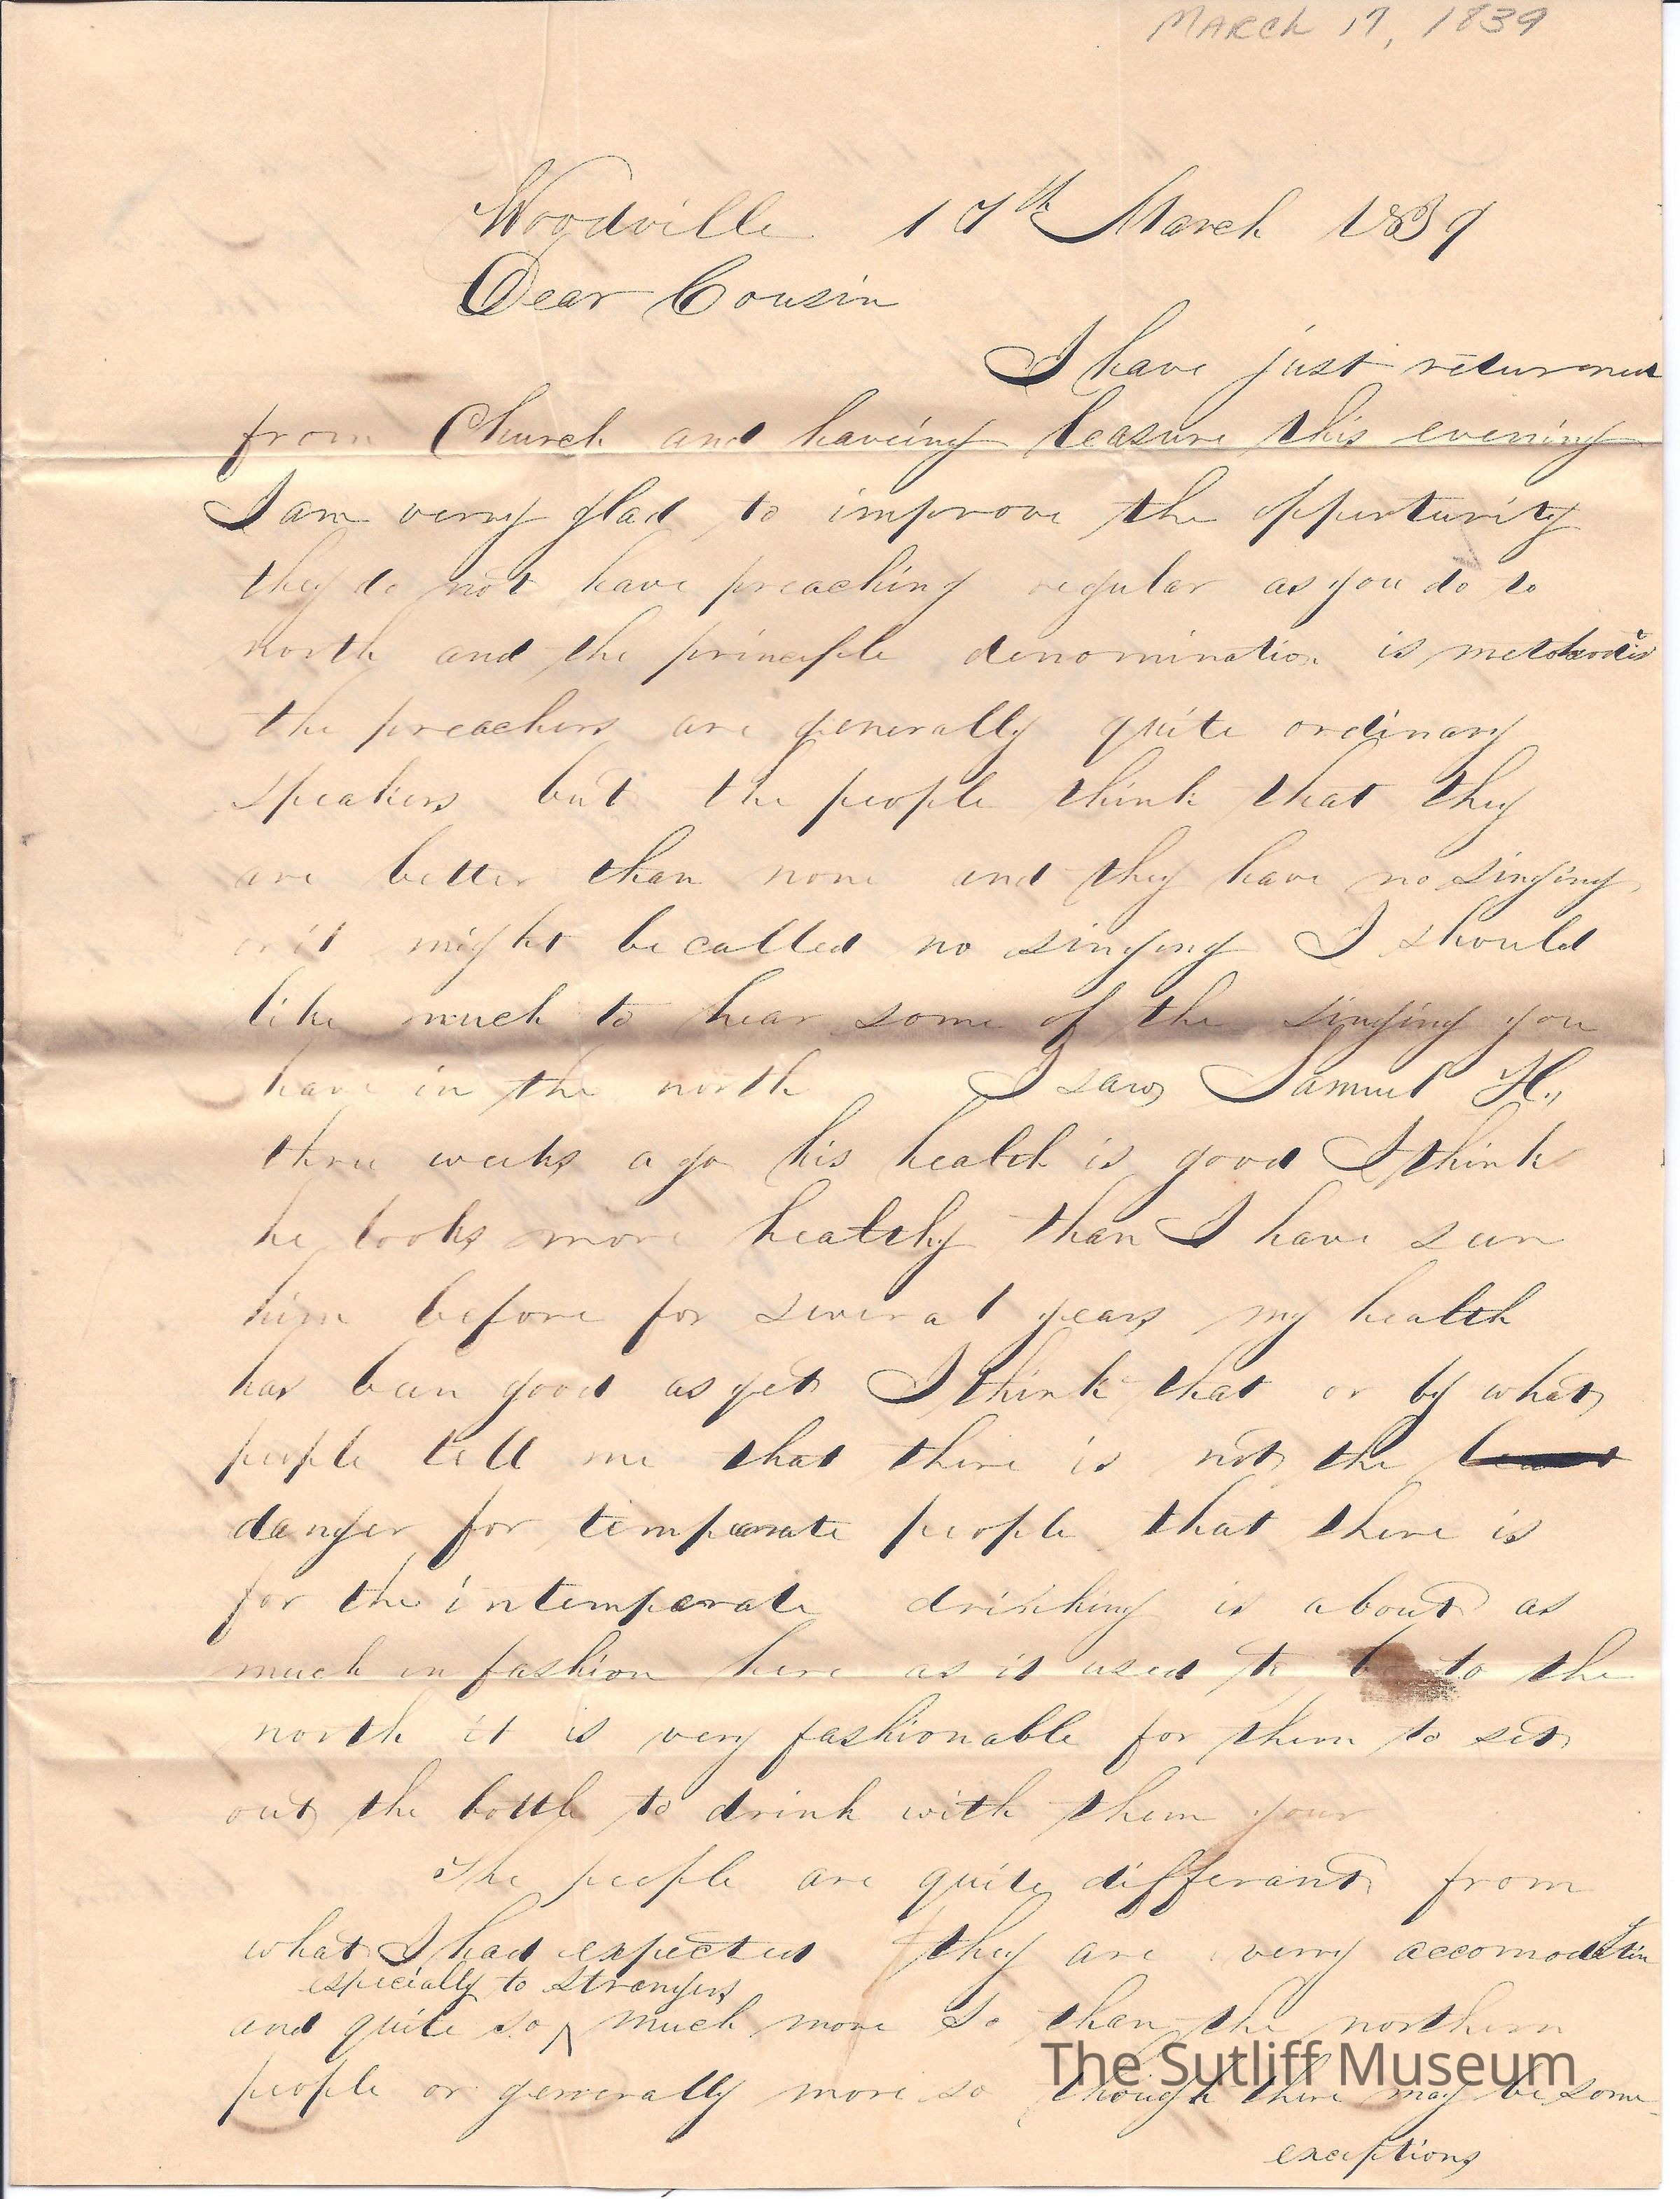 MARCH 17, 1839
Woodville 17th March 1839
Dear Cousin
I have just returned
from Church and haveing leasure this evening
I am verry glad to improve the oppertunity
they do not have preaching regular as you do to
north and the principle denomination is methodis
the preachers are generally quite ordinary
speakers but the people think that they
are better than none and they have no singing
or it might be called no singing I should
like much to hear some of the singing you
have in the north I saw Samuel H.,
three weeks ago his health is good I think
he looks more healthy than I have seen
him before for several years my health
has been good as yet I think that or by what
people tell me that there is not the
danger for temperate people that there is
for the intemperate drinking is about as
much in fashion here as it used to to the
north it is very fashionable for them to set
out the bottle to drink with them your
The people are quite differant from
what I had expected they are verry accomodatin
especially to strangers
and quite so ^ much more so than the northern
people or generally more so though there may be some
exceptions
The Sutliff Museum